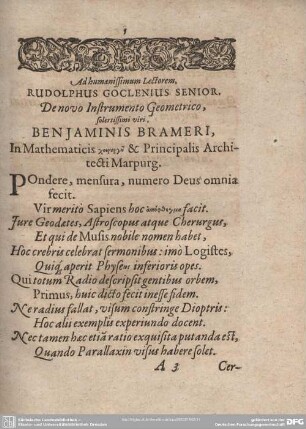 Ad humanissimum Lectorem,
RUDOLPHUS GOCLENIUS SENIOR.
De novo Instrumento Geometrico,
solertissimi viri
BENJAMINIS BRAMERI,
In Mathematicis & Principalis Archi-
tecti Marpurg.
POndere, mensura, numero Deus omnia
fecit.
Vir merito Sapiens hoc facit.
Jure Geodætes, Astroscopus atque Cherurgus,
Et qui de Musis nobile nomen habet,
Hoc crebris celebrat sermonibus: imò Logistes,
Quiq, aperit Physen inferioris opes.
Qui totum Radio descripsit gentibus orbem,
Primus, huic dicto fecit inesse fidem.
Ne radius fallat, visum constringe Dioptris:
Hoc alii exemplis experiundo docent.
Nec tamen hæc etiã ratio exquisita putanda est,
Quando Parallaxin visus habere solet.
A 3 Cer-